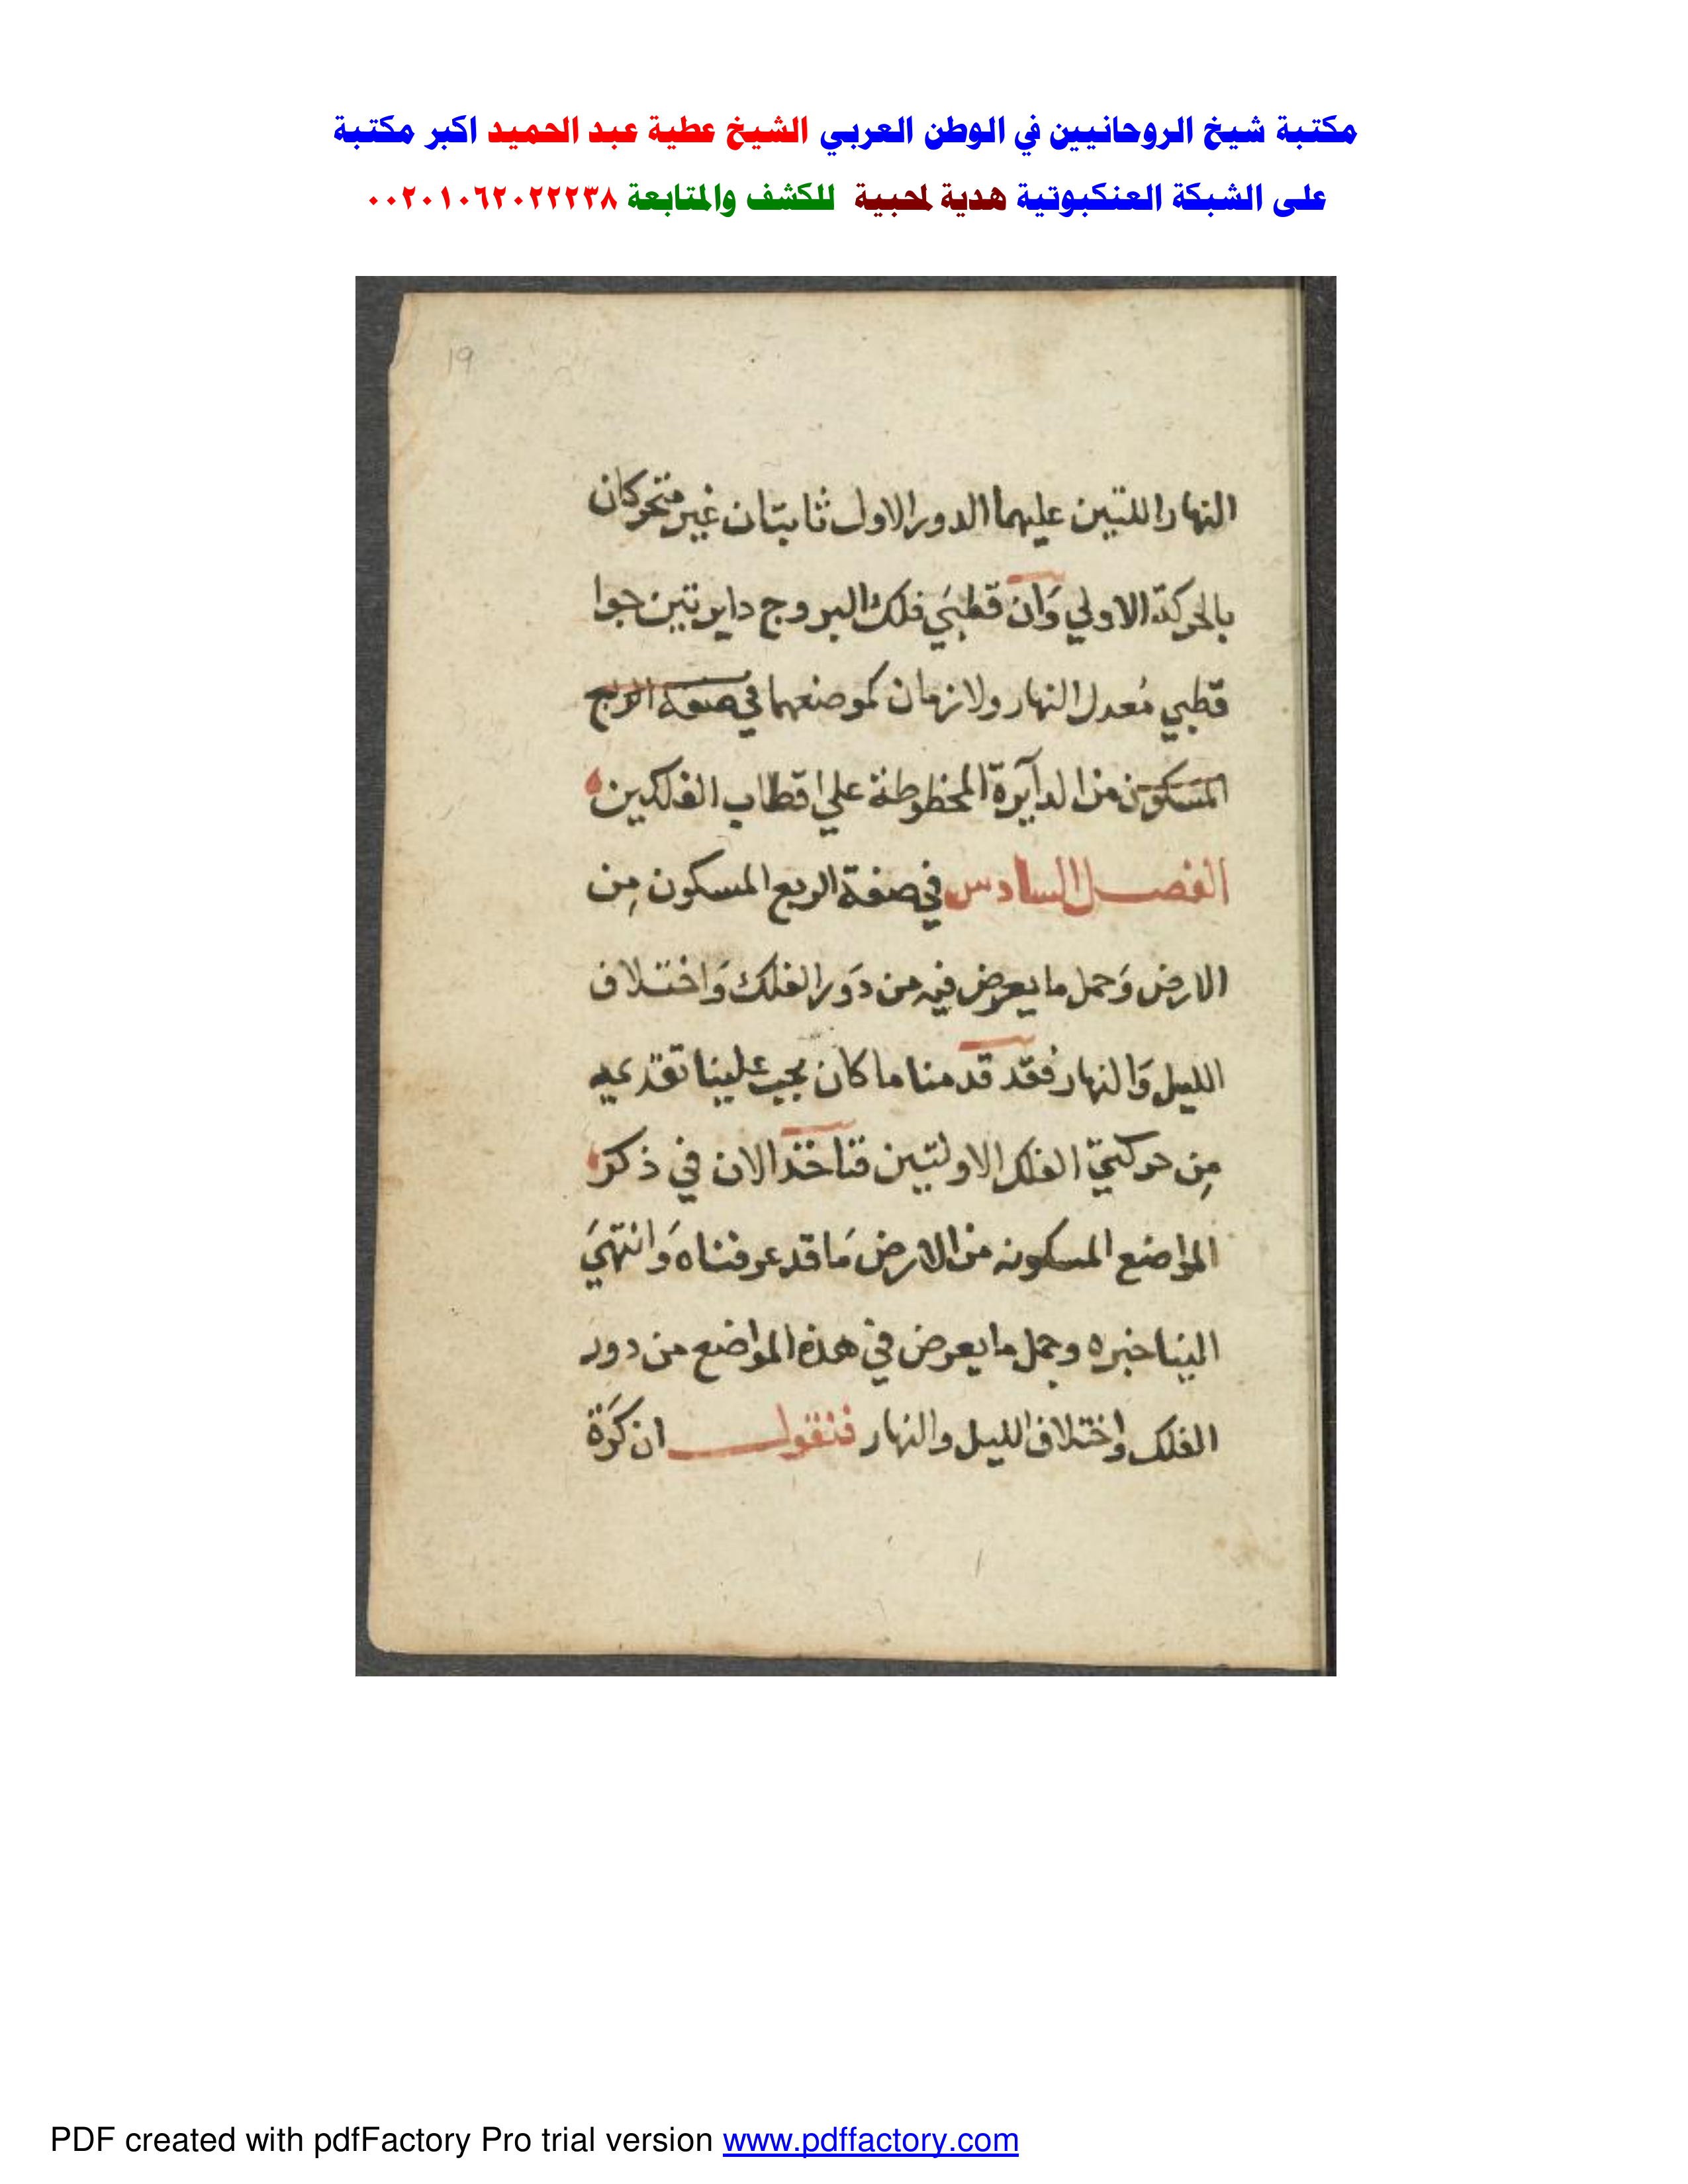 مكتبة شيخ الروحانيين في الوطن العربي الشيخ عطية عبد الحميد اكبر مكتبة
على الشبكة العنكبوتية هدية لمحبية للكشف والمتابعة ٠٠٢٠١٠٦٢٠٢٢٢٣٨
19
النهار اللتين عليهما الدور الاول ثابتان غير متحركان
بالحركة الاولي وَان قطبَي فلك البروج دايرتين حوا
قطبي مُعدل النهار ولازمان كموضعهما في صفة الربع
المسكون من الدآيرة المخطوطة علي اقطاب الفلكين
الفصل السادس في صفة الربع المسكون مِن
الارض وَجمل ما يعرض فيه من دَور الفلك وَاختلاف
الليل وَالنهار فقد قدمنا ما كان يجب علينا تقديمه
مِن حركتي الفلك الاولتين فناخذ الان في ذكر
المواضع المسكونه من الارض مَا قد عرفناه وَانتهيَ
الينا خبره وجمل ما يعرض في هذه المواضع من دور
الفلك واختلاف الليل والنهار فنقول ان كَرَة
PDF created with pdfFactory Pro trial version www.pdffactory.com